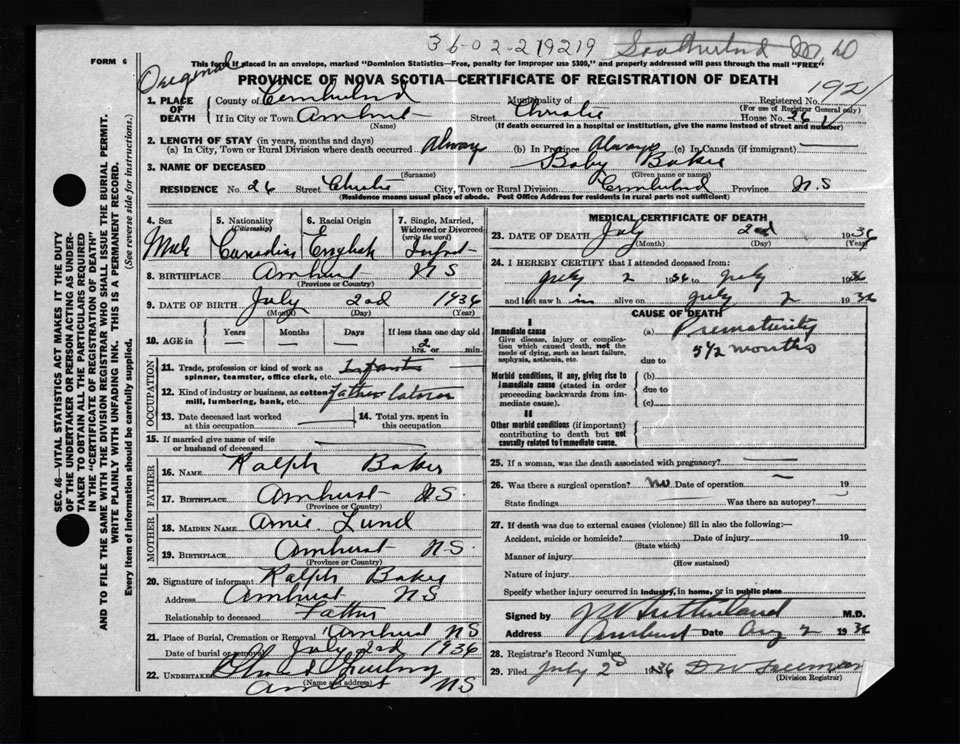 36-02-219219 Southerland M.D
FORM 6
Original
This form if placed in an envelope, marked "Dominion Statistics—Free, penalty for improper use $300," and properly addressed will pass through the mail "FREE"
PROVINCE OF NOVA SCOTIA—CERTIFICATE OF REGISTRATION OF DEATH
1. PLACE OF DEATH County of Cumberland Municipality of Registered No. 192
(For use of Registrar General only)
If in City or Town Amherst Street Christie House No. 26
(Name) (If death occurred in a hospital or institution, give the name instead of street and number)
2. LENGTH OF STAY (in years, months and days)
(a) In City, Town or Rural Division where death occurred Always (b) In Province Always (c) In Canada (if immigrant)
3. NAME OF DECEASED Baby Baker
(Surname) (Given name or names)
RESIDENCE No. 26 Street Christie City, Town or Rural Division Cumberland Province N.S
(Residence means usual place of abode. Post Office Address for residents in rural parts not sufficient)
SEC. 46—VITAL STATISTICS ACT MAKES IT THE DUTY
OF THE UNDERTAKER OR PERSON ACTING AS UNDER-
TAKER TO OBTAIN ALL THE PARTICULARS REQUIRED
IN THE "CERTIFICATE OF REGISTRATION OF DEATH"
AND TO FILE THE SAME WITH THE DIVISION REGISTRAR WHO SHALL ISSUE THE BURIAL PERMIT.
WRITE PLAINLY WITH UNFADING INK. THIS IS A PERMANENT RECORD.
Every item of information should be carefully supplied. (See reverse side for instructions.)
4. Sex Male
5. Nationality (Citizenship) Canadian
6. Racial Origin English
7. Single, Married, Widowed or Divorced (write the word) Infant
8. BIRTHPLACE Amherst N S
(Province or Country)
9. DATE OF BIRTH July 2nd 1936
(Month) (Day) (Year)
10. AGE in Years Months Days If less than one day old
2 hrs. or min.
OCCUPATION
11. Trade, profession or kind of work as spinner, teamster, office clerk, etc. Infant
12. Kind of industry or business, as cotton mill, lumbering, bank, etc. Father laborer
13. Date deceased last worked at this occupation
14. Total yrs. spent in this occupation
15. If married give name of wife or husband of deceased
FATHER
16. NAME Ralph Baker
17. BIRTHPLACE Amherst N.S.
(Province or Country)
MOTHER
18. MAIDEN NAME Annie Lund
19. BIRTHPLACE Amherst N.S.
(Province or Country)
20. Signature of informant Ralph Baker
Address Amherst N S
Relationship to deceased Father
21. Place of Burial, Cremation or Removal Amherst N S
Date of burial or removal July 2nd 1936
22. UNDERTAKER
(Name and address)
Amherst N S
MEDICAL CERTIFICATE OF DEATH
23. DATE OF DEATH July 2nd 1936
(Month) (Day) (Year)
24. I HEREBY CERTIFY that I attended deceased from:
July 2 1936 to July 1936
and last saw him alive on July 2 1936
CAUSE OF DEATH
I
Immediate cause
Give disease, injury or complication which caused death, not the mode of dying, such as heart failure, asphyxia, asthenia, etc.
(a) Prematurity
5 1/2 months
due to
Morbid conditions, if any, giving rise to immediate cause (stated in order proceeding backwards from immediate cause).
(b)
due to
(c)
II
Other morbid conditions (if important) contributing to death but not causally related to immediate cause.
25. If a woman, was the death associated with pregnancy?
26. Was there a surgical operation? no Date of operation 19
State findings Was there an autopsy?
27. If death was due to external causes (violence) fill in also the following:—
Accident, suicide or homicide? Date of injury 19
(State which)
Manner of injury
(How sustained)
Nature of injury
Specify whether injury occurred in industry, in home, or in public place
Signed by Sutherland M.D.
Address Amherst Date Aug 2 1936
28. Registrar's Record Number
29. Filed July 2d 1936 D W Freeman
(Division Registrar)